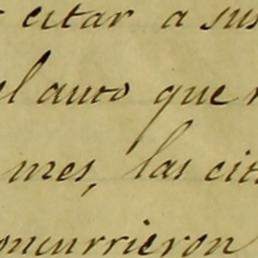 citar a sus
el auto que
mes, las cit
oncurrieron